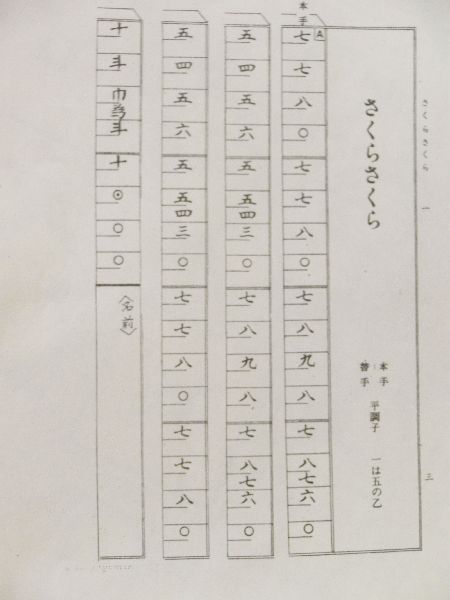 さくらさくら 一 三
さくらさくら
本手
替手
平調子 一は五の乙
本手
A
七 七 八 ○ 七 七 八 ○ 七 八 九 八 七 八七 六 ○
五 四 五 六 五 五四 三 ○ 七 八 九 八 七 八七 六 ○
五 四 五 六 五 五四 三 ○ 七 七 八 ○ 七 七 八 ○
十 斗 巾為 斗 十 ⊙ ○ ○
〈名前〉